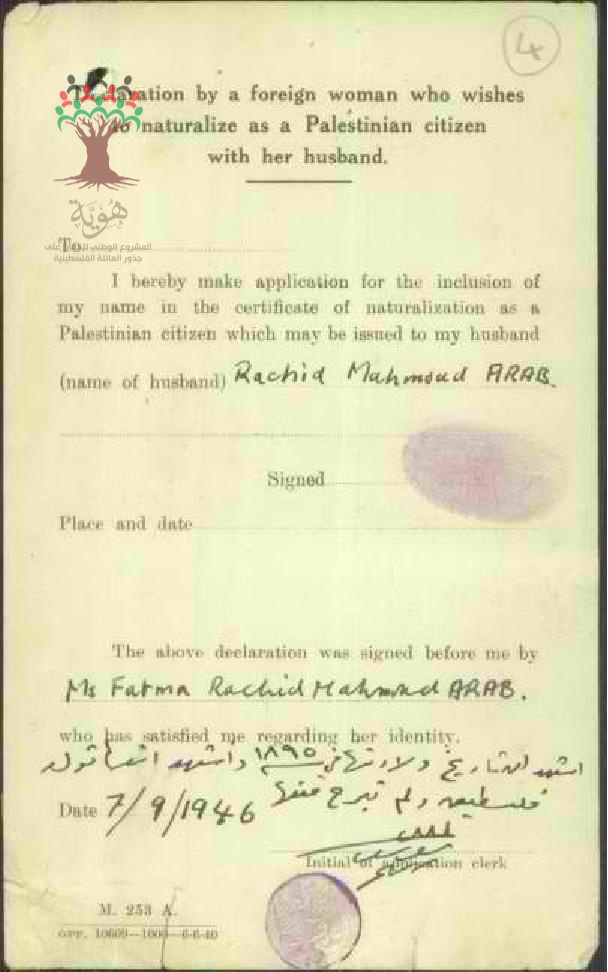 4
Declaration by a foreign woman who wishes
to naturalize as a Palestinian citizen
with her husband.
هُوِيَّة
المشروع الوطني للحفاظ على
جذور العائلة الفلسطينية
To
I hereby make application for the inclusion of
my name in the certificate of naturalization as a
Palestinian citizen which may be issued to my husband
(name of husband) Rachid Mahmoud ARAB.
Signed
Place and date
The above declaration was signed before me by
Ms Fatma Rachid Mahmoud ARAB.
who has satisfied me regarding her identity.
اشهد ان تاريخ ولادتها في ١٨٩٥ واشهد انها
فلسطينية ولم تبرح
Date 7/9/1946
Initial of application clerk
M. 253 A.
GPP. 10609—1000—6-6-40